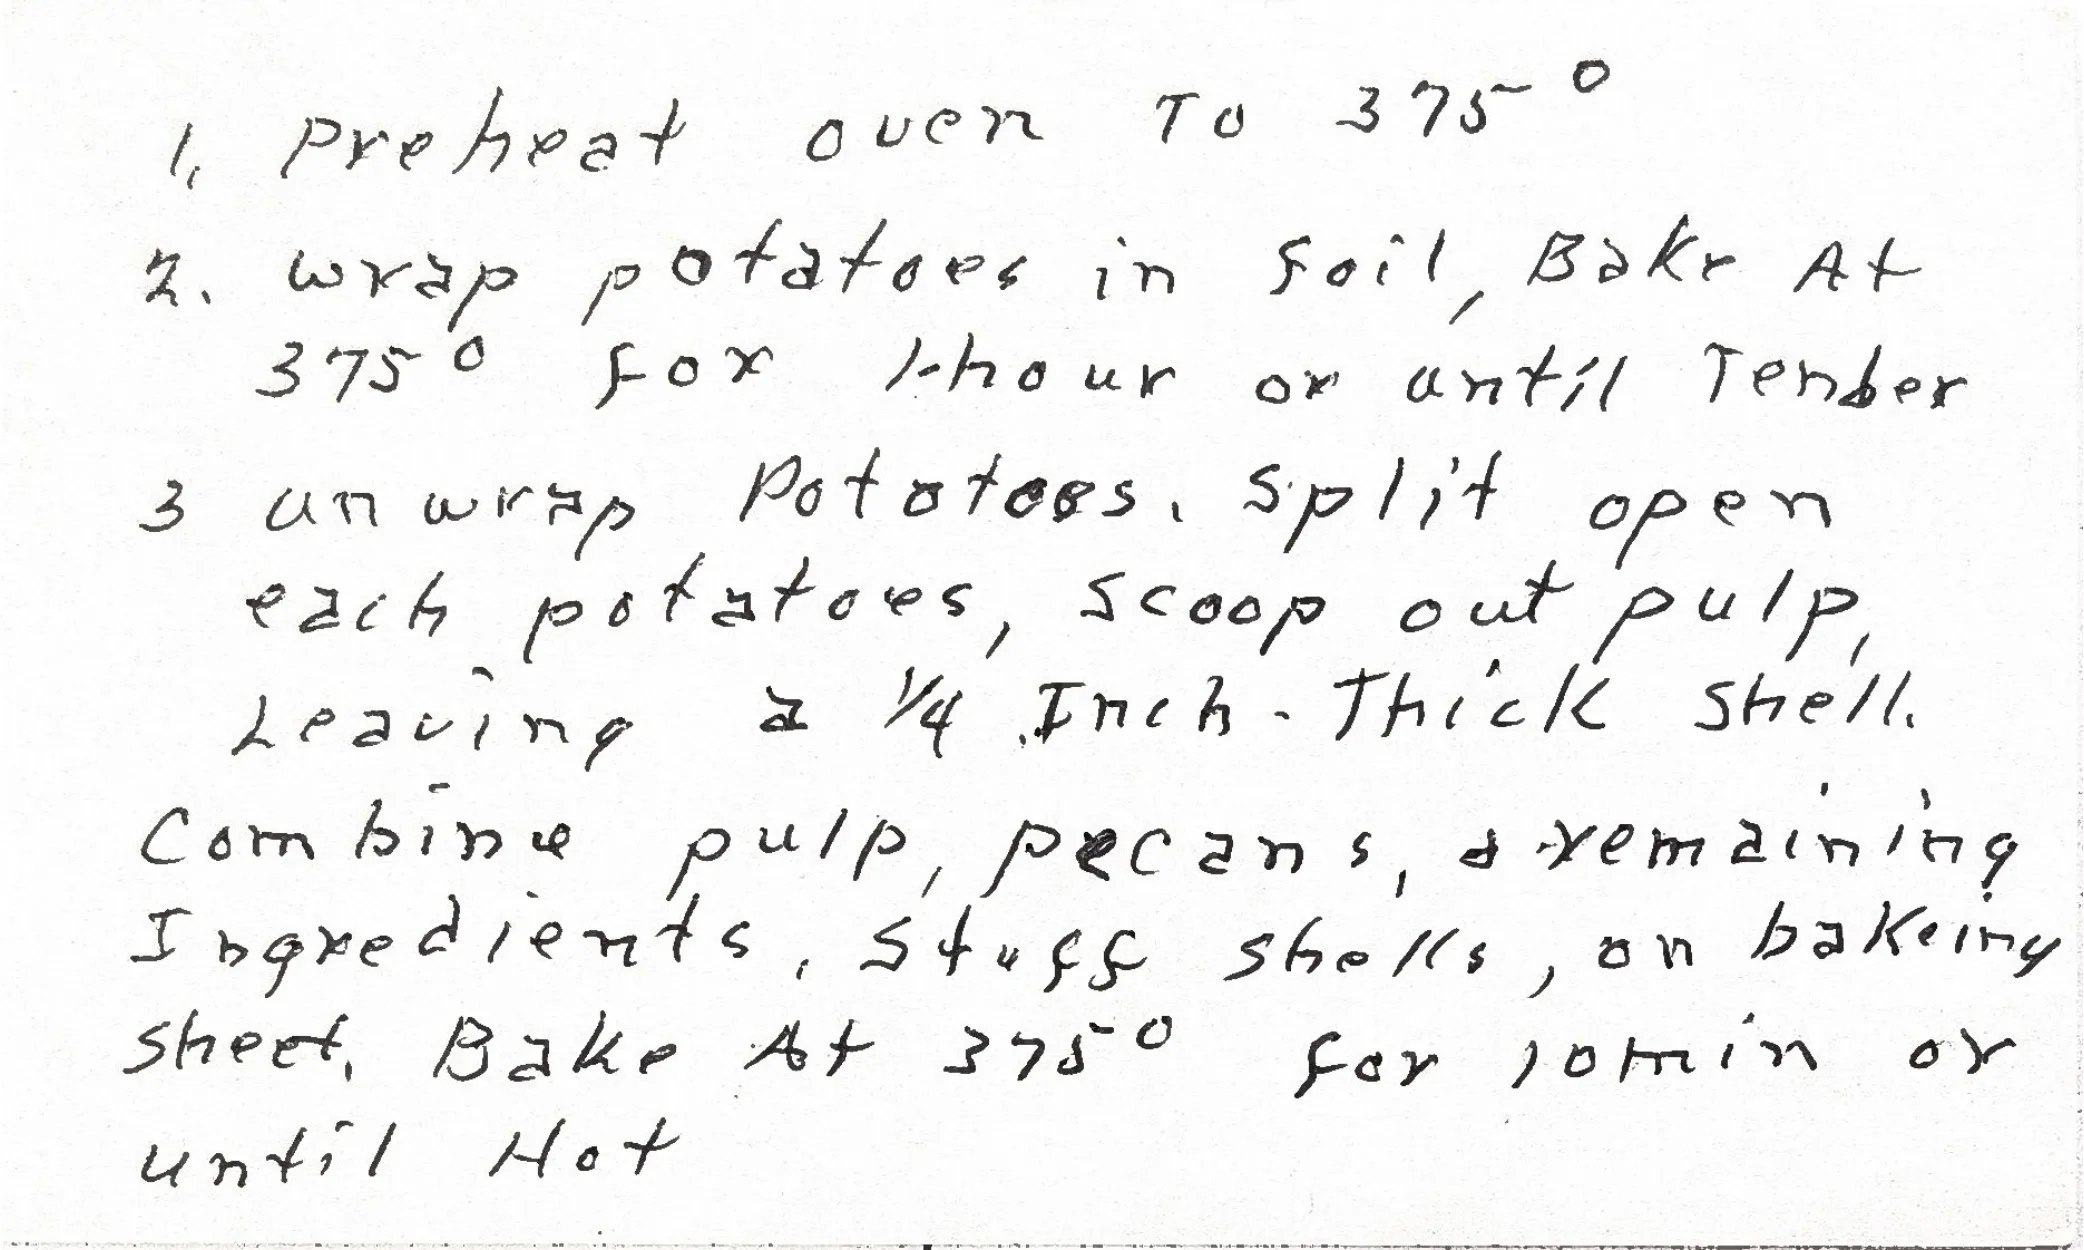 1. Preheat oven To 375°
2. wrap potatoes in foil, Bake At
375° for 1-hour or until Tender
3 unwrap Pototoes. Split open
each potatoes, Scoop out pulp,
Leaving a 1/4 Inch-Thick Shell.
Combine pulp, pecans, & remaining
Ingredients. Stuff shells, on bakeing
sheet. Bake At 375° for 10min or
until Hot